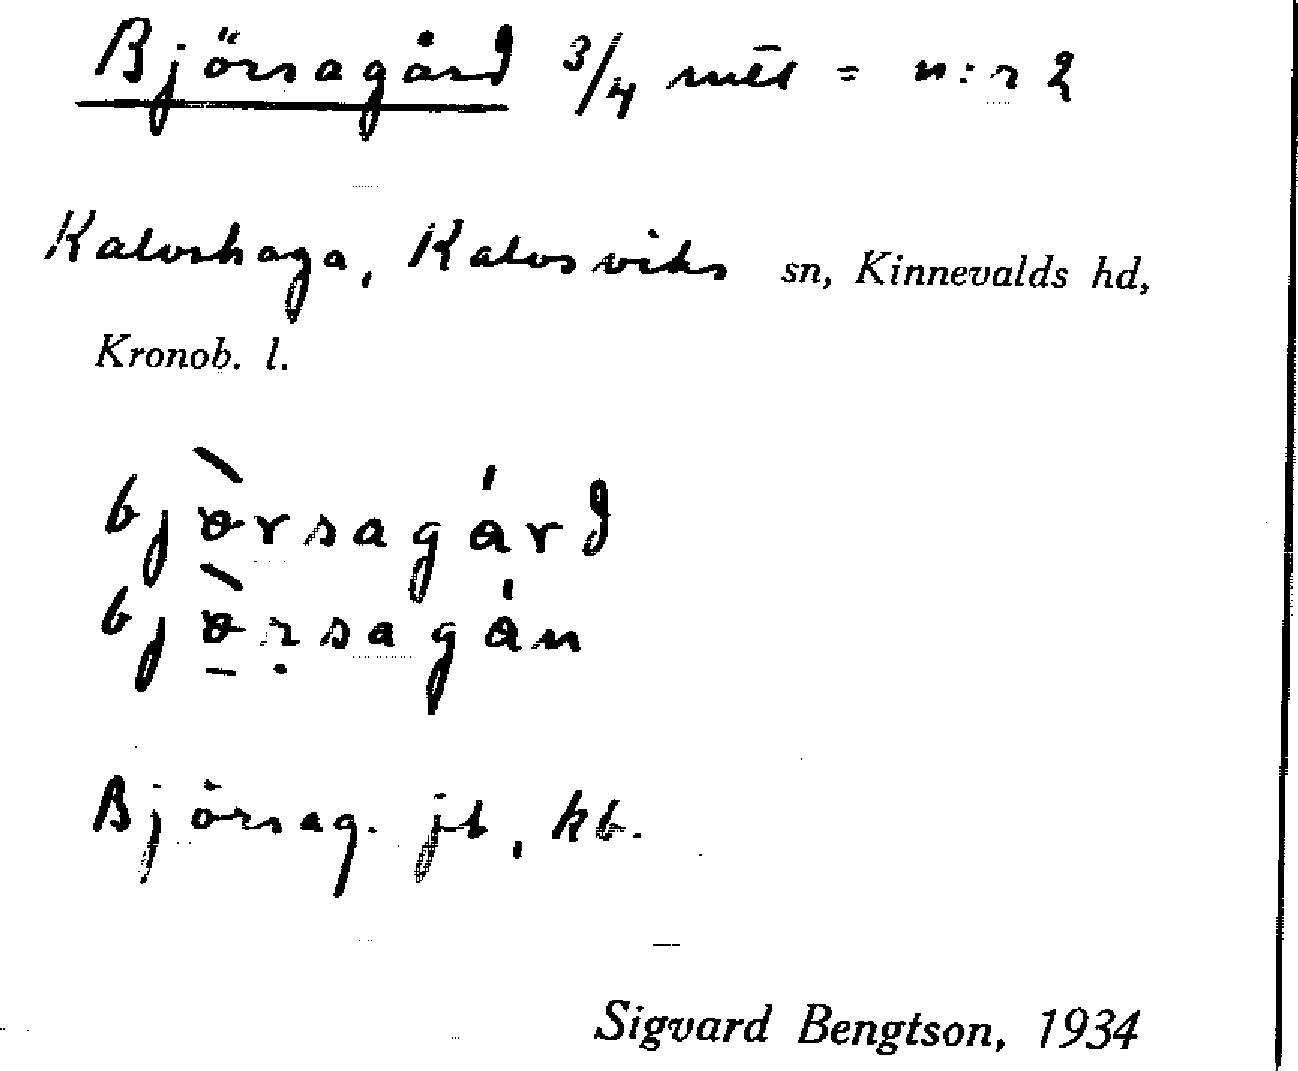 Björsagård 3/4 mtl = n:r 2
Kalvshaga, Kalvsviks sn, Kinnevalds hd,
Kronob. l.
bjòrsagárd
bjòrsagán
Björsag. jb, kb.
Sigvard Bengtson, 1934